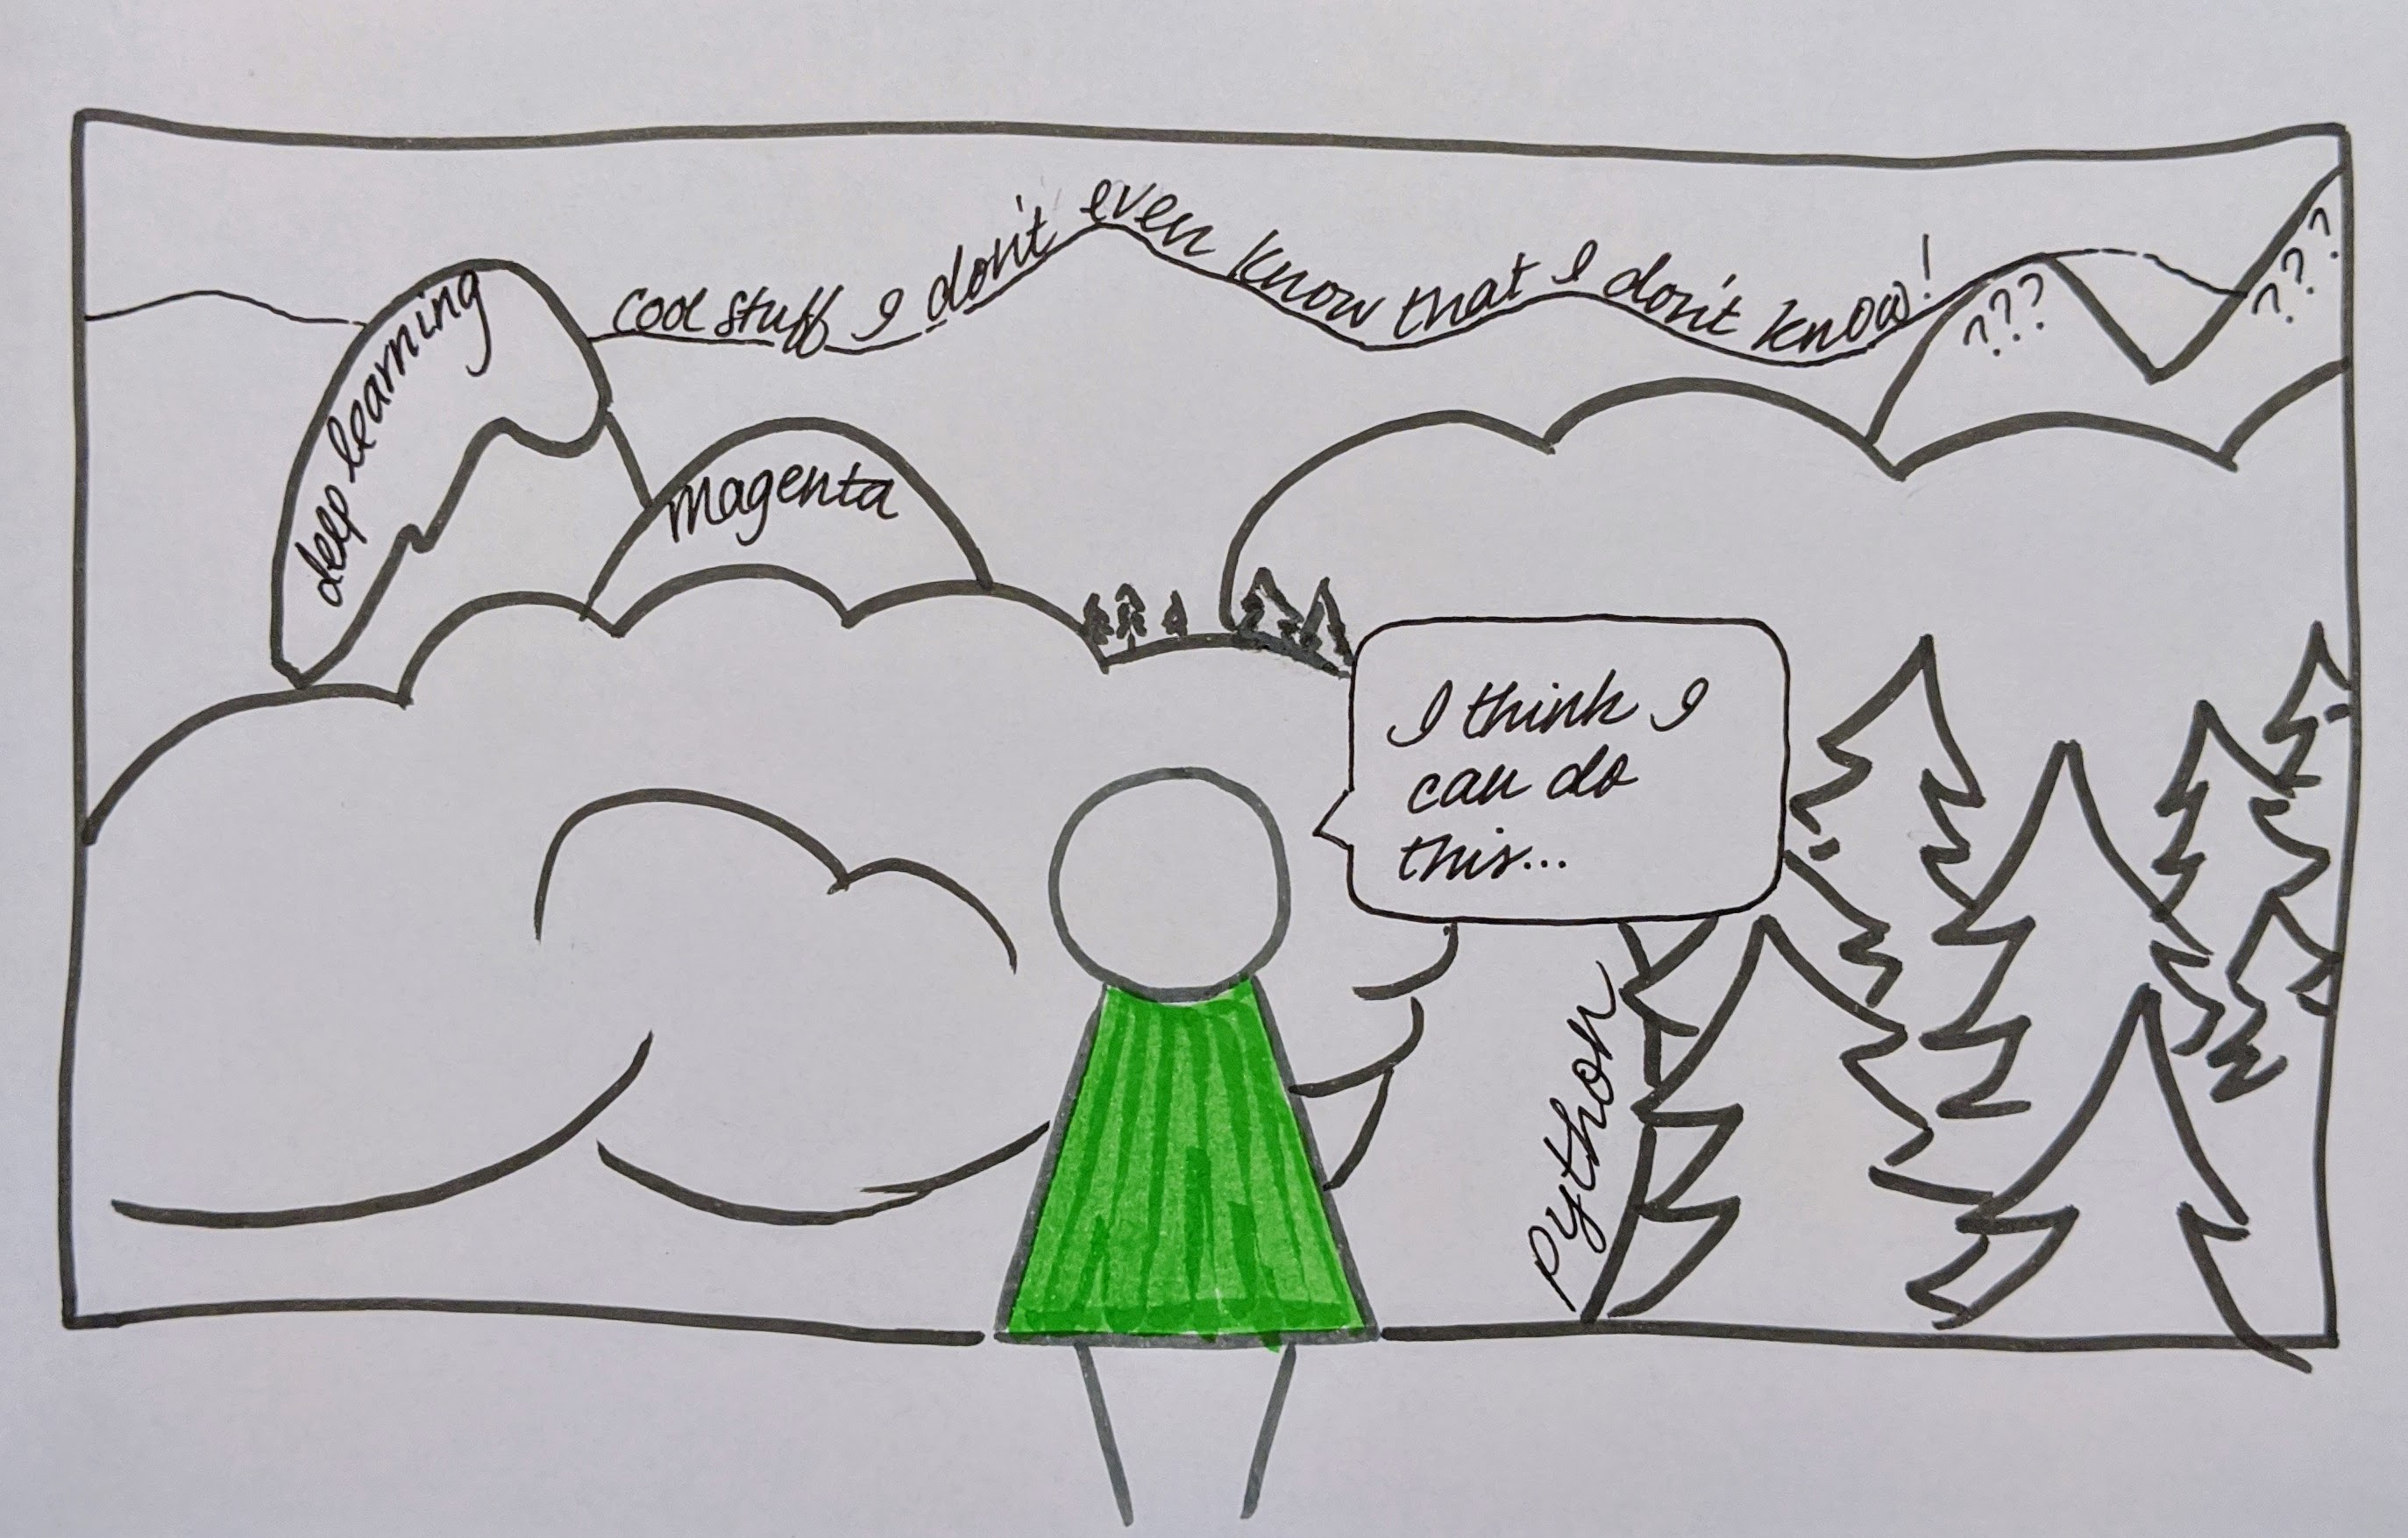 cool stuff I don't even know that I don't know!
???
???
deep learning
magenta
I think I
can do
this...
Python